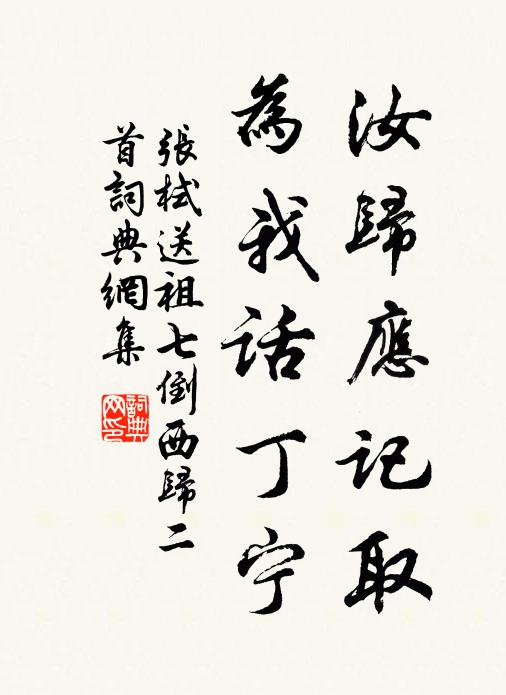 汝歸應記取
為我話丁宁
張栻送祖七倒西歸二
首詞典網集
詞典网印